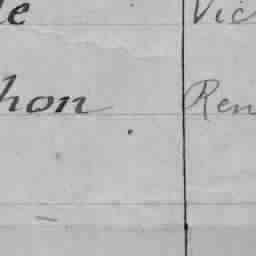 le Vic
hon Ren